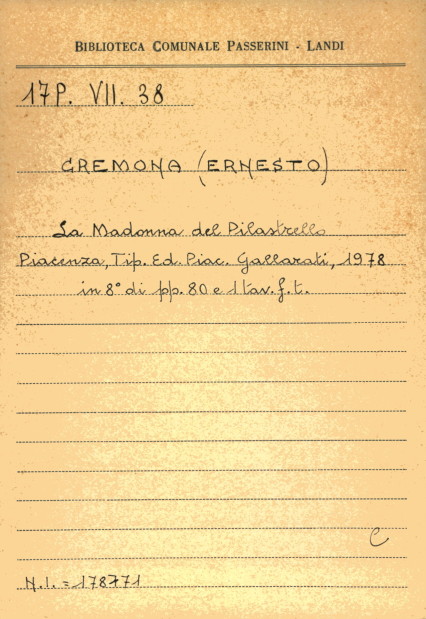 BIBLIOTECA COMUNALE PASSERINI - LANDI
17P. VII. 38
CREMONA (ERNESTO)
La Madonna del Pilastrello
Piacenza, Tip. Ed. Piac. Gallarati, 1978
in 8° di pp. 80 e 1 tav. f. t.
C
N.I. = 178771